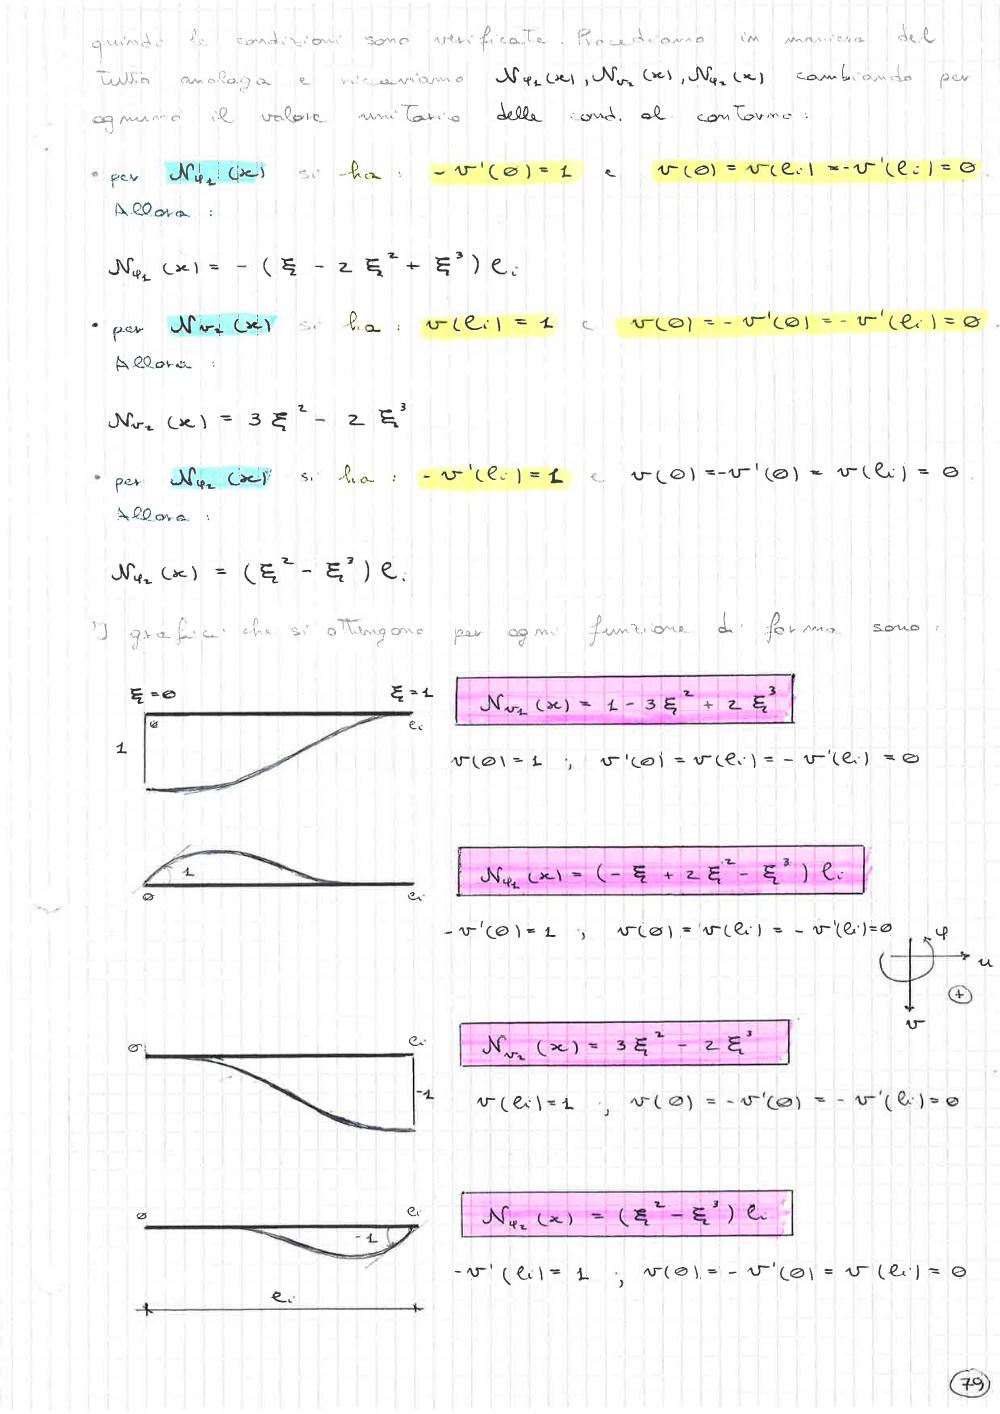 quindi le condizioni sono verificate. Procediamo in maniera del
tutto analoga e ricaviamo Nφ₁(x), Nv₂(x), Nφ₂(x) cambiando per
ognuno il valore unitario delle cond. al contorno:
• per Nφ₁(x) si ha: -v'(0)=1 e v(0)=v(ℓi)=-v'(ℓi)=0
Allora:
Nφ₁(x) = -(ξ - 2ξ² + ξ³)ℓi
• per Nv₂(x) si ha: v(ℓi)=1 e v(0)=-v'(0)=-v'(ℓi)=0.
Allora:
Nv₂(x) = 3ξ² - 2ξ³
• per Nφ₂(x) si ha: -v'(ℓi)=1 e v(0)=-v'(0)=v(ℓi)=0.
Allora:
Nφ₂(x) = (ξ² - ξ³)ℓi
I grafici che si ottengono per ogni funzione di forma sono:
ξ=0 ξ=1 Nv₁(x) = 1 - 3ξ² + 2ξ³
0 ℓi
1 v(0)=1 ; v'(0)=v(ℓi)=-v'(ℓi)=0
1 Nφ₁(x) = (-ξ + 2ξ² - ξ³)ℓi
0 ℓi
-v'(0)=1 ; v(0)=v(ℓi)=-v'(ℓi)=0
φ
u
+
v
0 ℓi Nv₂(x) = 3ξ² - 2ξ³
-1 v(ℓi)=1 ; v(0)=-v'(0)=-v'(ℓi)=0
0 ℓi Nφ₂(x) = (ξ² - ξ³)ℓi
-1
-v'(ℓi)=1 ; v(0)=-v'(0)=v(ℓi)=0
ℓi
79